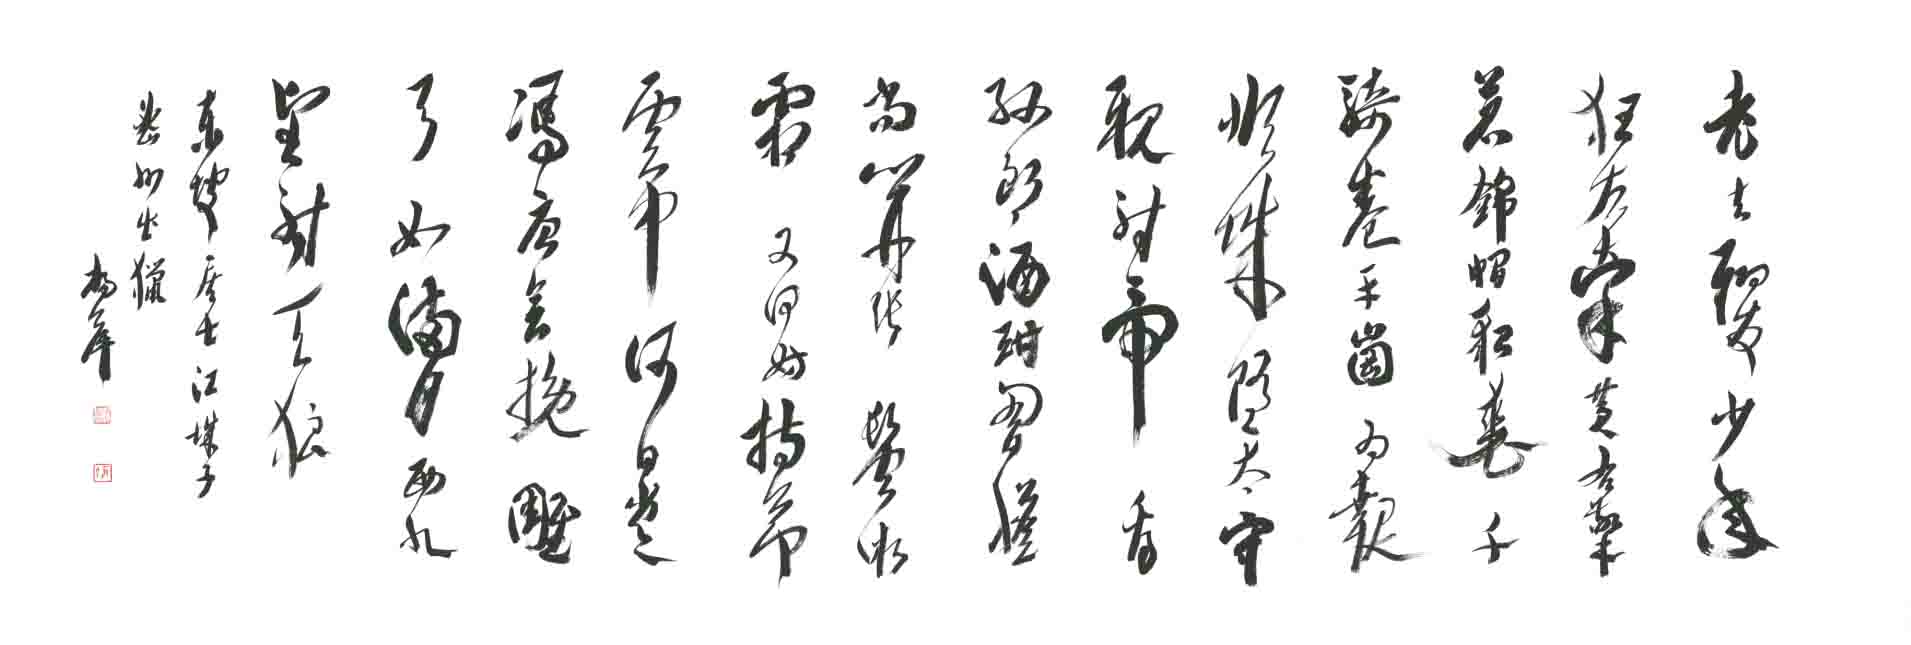 老夫聊發少年
狂左牽黃右擎
蒼錦帽貂裘千
騎卷平岡為報
傾城隨太守
親射虎看
孫郎酒酣胸膽
尚開張鬢微
霜又何妨持節
雲中何日遣
馮唐會挽雕
弓如滿月西北
望射天狼
東坡居士江城子
密州出獵